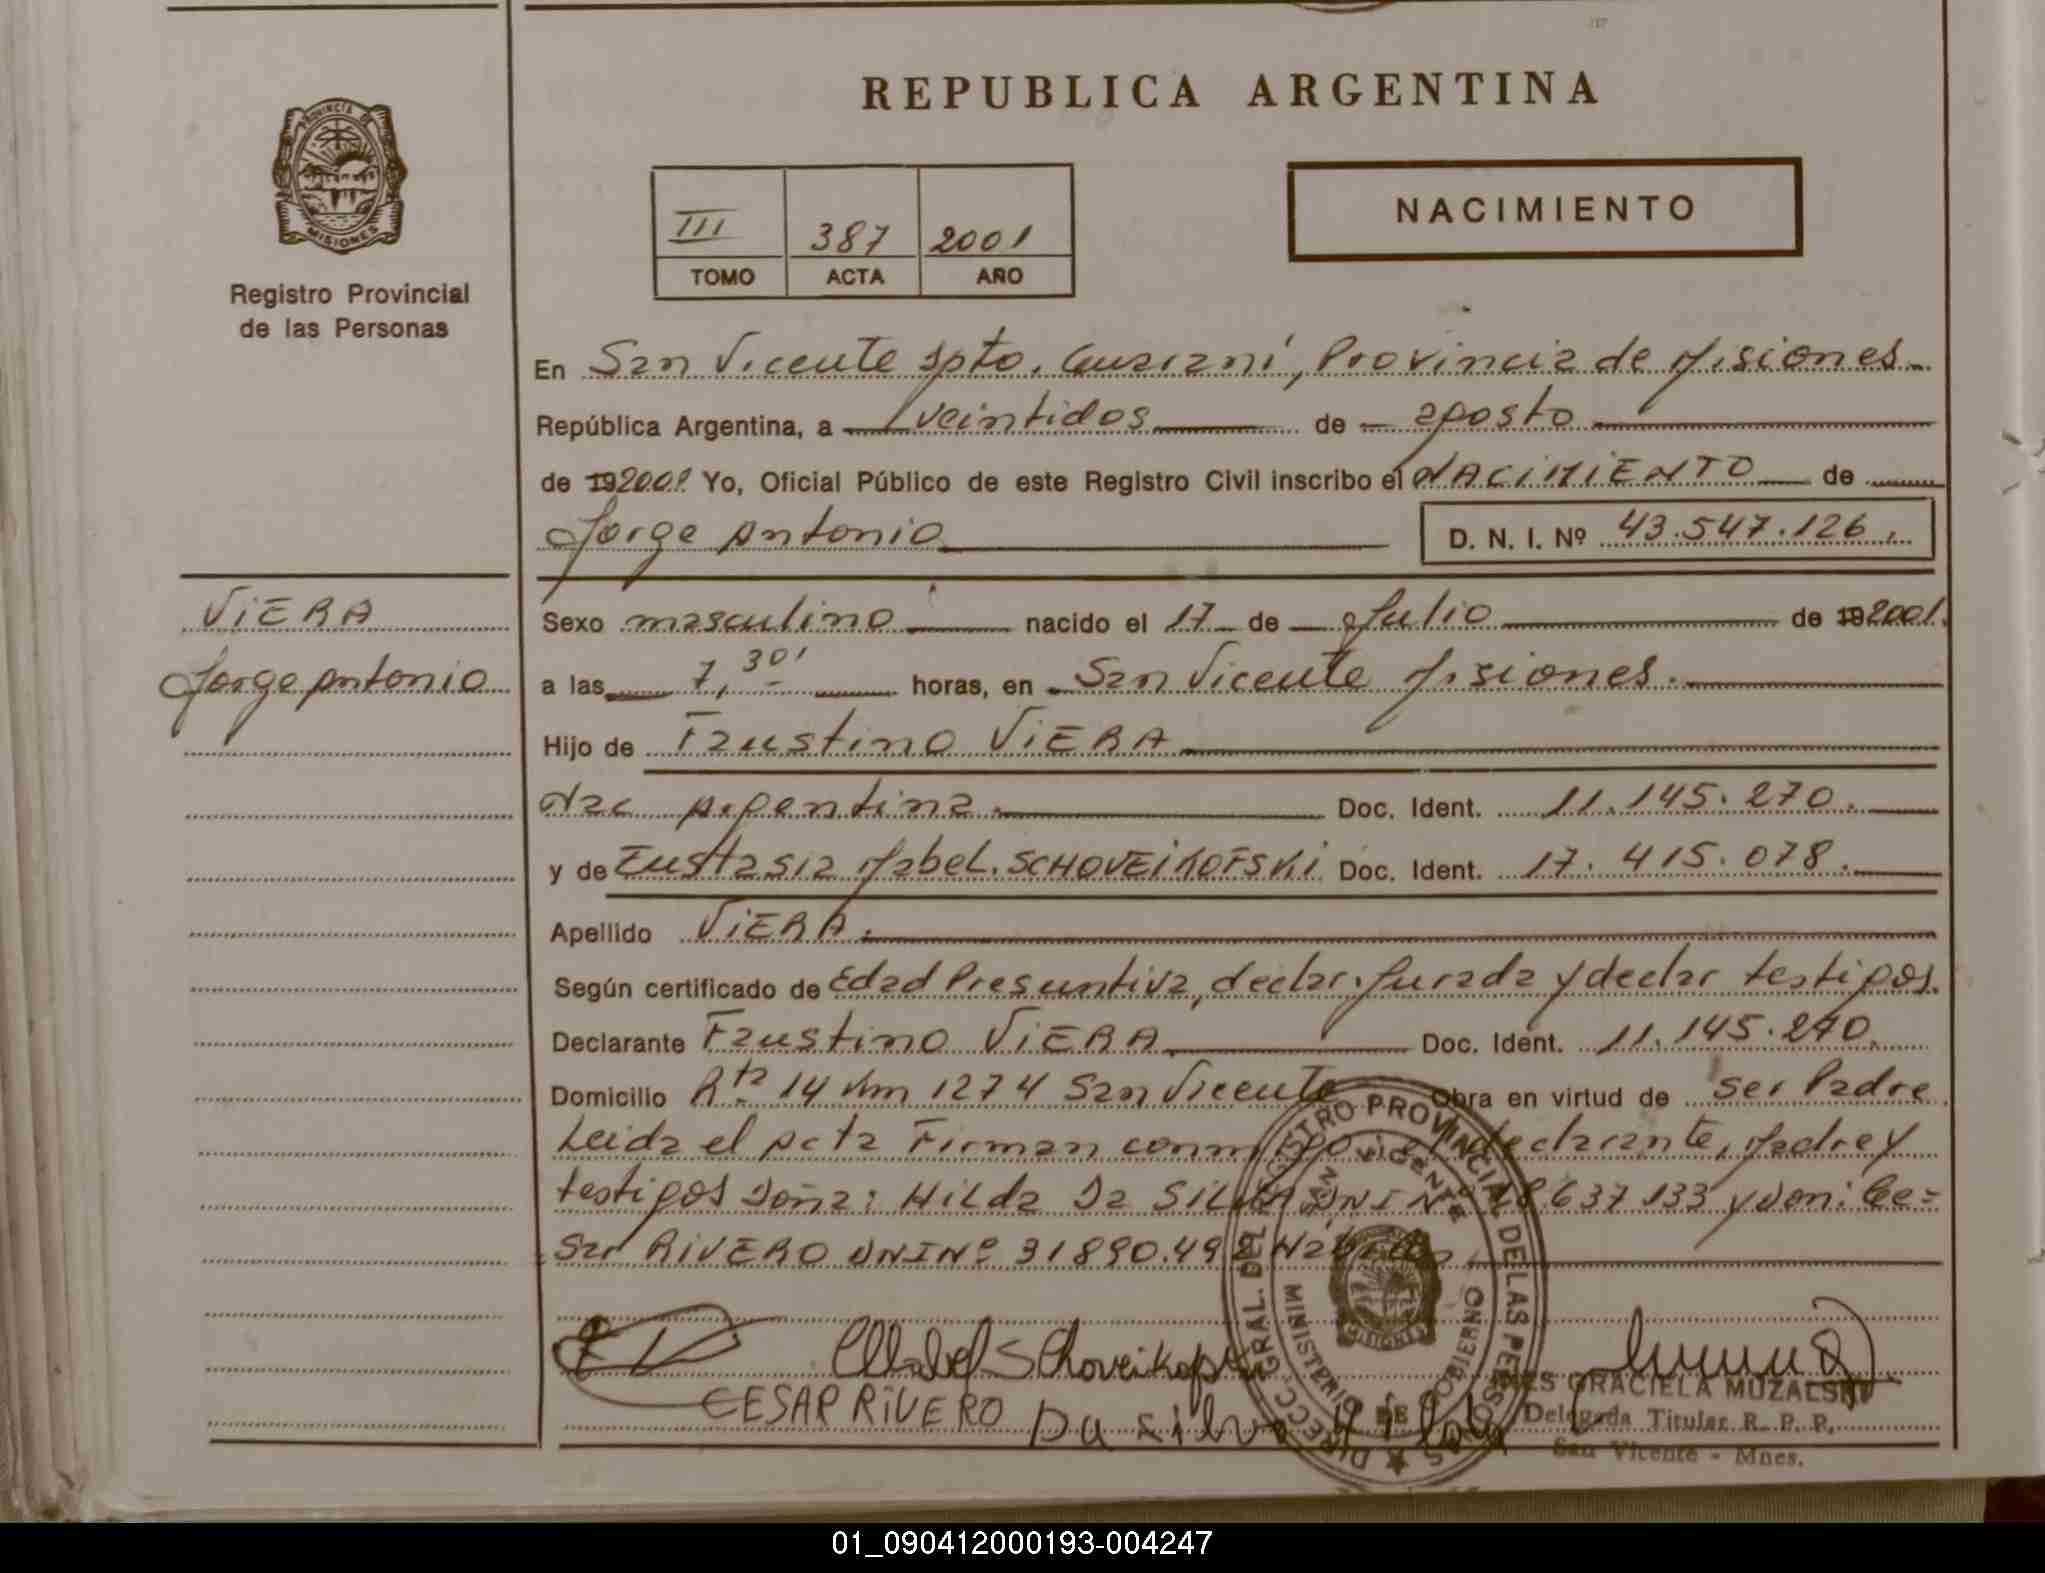 REPUBLICA ARGENTINA
PROVINCIA DE
MISIONES
Registro Provincial
de las Personas
III 387 2001
TOMO ACTA AÑO
NACIMIENTO
En San Vicente Dpto. Guaraní, Provincia de Misiones
República Argentina, a veintidos de agosto
de 19 2001 Yo, Oficial Público de este Registro Civil inscribo el NACIMIENTO de
Jorge Antonio D. N. I. Nº 43.547.126.
VIERA
Jorge Antonio
Sexo masculino nacido el 17 de Julio de 19 2001.
a las 7,30' horas, en San Vicente Misiones.
Hijo de Faustino VIERA
Nac Argentina. Doc. Ident. 11.145.270.
y de Eustasia Mabel. SCHOVEIKOFSKI Doc. Ident. 17.415.078.
Apellido VIERA.
Según certificado de Edad Presuntiva, declar. Jurada y declar testigos.
Declarante Faustino VIERA Doc. Ident. 11.145.270.
Domicilio Rta 14 Km 1274 San Vicente Obra en virtud de ser Padre
Leida el Acta Firman conmigo el declarante, Madre y
testigos Doña: Hilda Da SILVA DNI Nº 18.637.133 y don: Ce=
sar RIVERO DNI Nº 31890.498
Mabel Schoveikofs
CESAR RIVERO Da silva
DIRECC. GRAL. DEL REGISTRO PROVINCIAL DE LAS PERSONAS
SAN VICENTE
MINISTERIO DE GOBIERNO
MISIONES
INES GRACIELA MUZALSKI
Delegada Titular R. P. P.
San Vicente - Mnes.
01_090412000193-004247